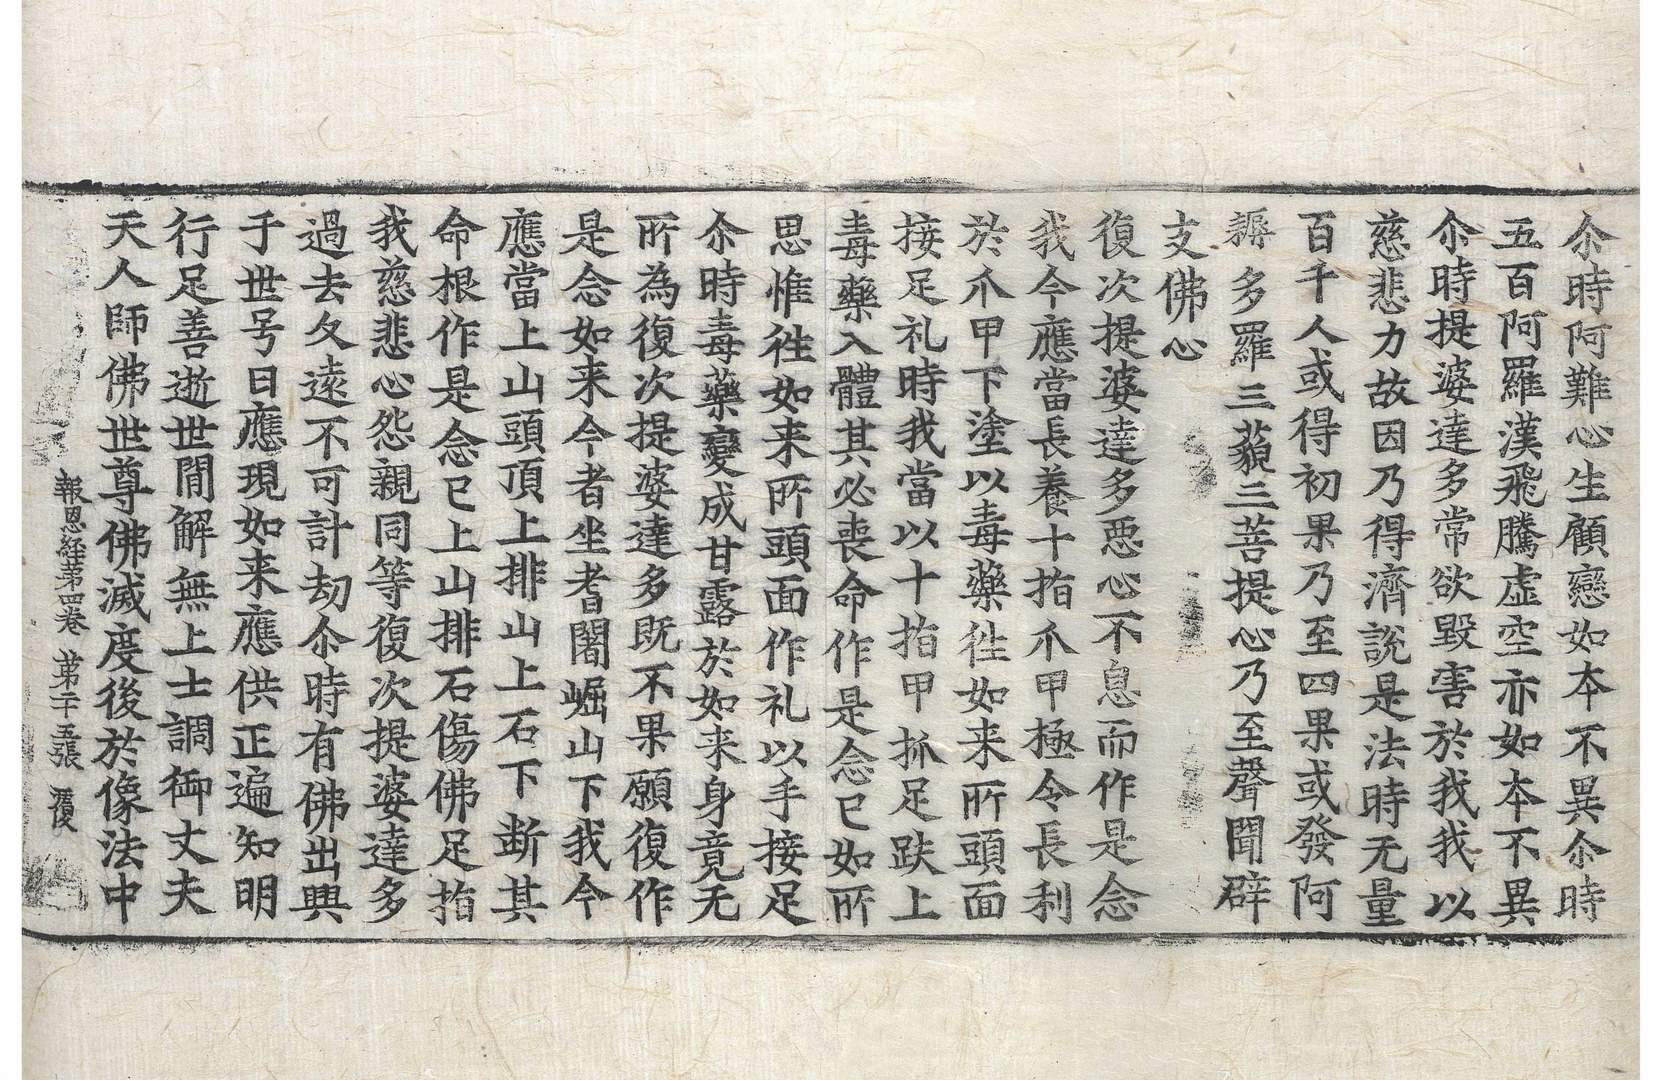 尒時阿難心生顧戀如本不異尒時
五百阿羅漢飛騰虛空亦如本不異
尒時提婆達多常欲毀害於我我以
慈悲力故因乃得濟說是法時无量
百千人或得初果乃至四果或發阿
耨多羅三藐三菩提心乃至聲聞辟
支佛心
復次提婆達多惡心不息而作是念
我今應當長養十指爪甲極令長利
於爪甲下塗以毒藥徃如来所頭面
接足礼時我當以十指甲抓足趺上
毒藥入體其必喪命作是念已如所
思惟徃如来所頭面作礼以手接足
尒時毒藥變成甘露於如来身竟无
所為復次提婆達多既不果願復作
是念如来今者坐耆闍崛山下我今
應當上山頭頂上排山上石下断其
命根作是念已上山排石傷佛足指
我慈悲心怨親同等復次提婆達多
過去久遠不可計劫尒時有佛出興
于世号曰應現如来應供正遍知明
行足善逝世間解無上士調御丈夫
天人師佛世尊佛滅度後於像法中
報恩経苐四卷 苐二十五張 覆